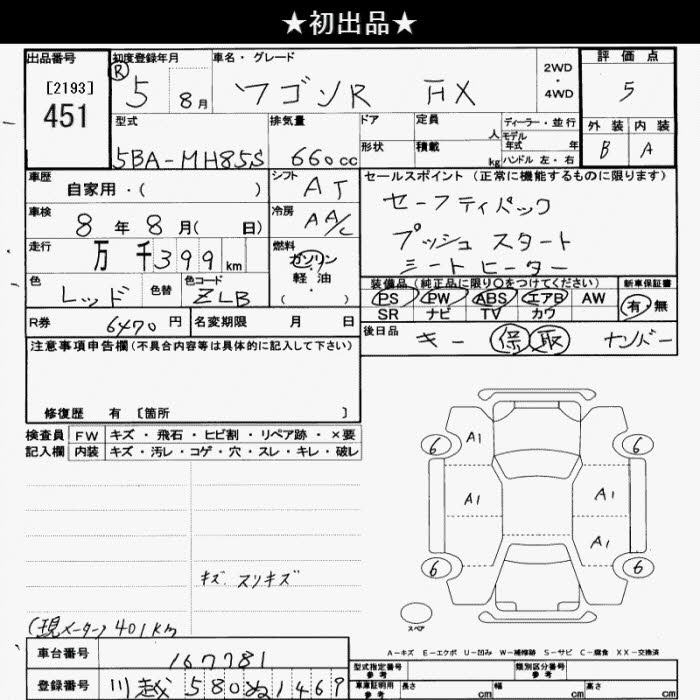 ★初出品★
出品番号 初度登録年月 車名・グレード 2WD・4WD 評価点
[2193]
451
R 5 8月 ワゴンR HX 5
型式 排気量 ドア 定員 人 ディーラー・並行 外装 内装
モデル年式 年
5BA-MH85S 660cc 形状 積載 kg ハンドル 左・右 B A
車歴 自家用・( ) シフト AT セールスポイント (正常に機能するものに限ります)
車検 8年8月( 日) 冷房 AA/C セーフティパック
走行 万千399km 燃料 ガソリン 軽油 ( ・ ) プッシュスタート
シートヒーター
色 レッド 色替 色コード ZLB 装備品 (純正品に限り○をつけてください) 新車保証書
PS PW ABS エアB AW 有・無
SR ナビ TV カワ
R券 6470円 名変期限 月 日 後日品 キー 保 取 ナンバー
注意事項申告欄(不具合内容等は具体的に記入して下さい)
修復歴 有 [箇所 ]
検査員 FW キズ・飛石・ヒビ割・リペア跡・×要
記入欄 内装 キズ・汚レ・コゲ・穴・スレ・キレ・破レ
6 A1 6
A1 A1
A1
キズ、スリキズ 6 6
スペア
(現メーター) 401km
A−キズ E−エクボ U−凹み W−補修跡 S−サビ C−腐食 XX−交換済
車台番号 167781 型式指定番号 参考 類別区分番号 参考
登録番号 川越580ぬ1469 車庫証明用 参考 長さ cm 幅 cm 高さ cm